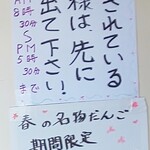 されている
様は、先に
出て下さい。
AM
8時
30分
S
PM
5時
30分
まで
春の名物だんご
期間限定